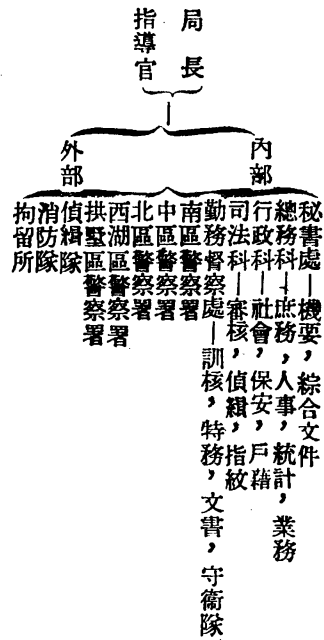 局長
指導官
內部
秘書處—機要,綜合文件
總務科—庶務,人事,統計,業務
行政科—社會,保安,戶藉
司法科—審核,偵緝,指紋
勤務督察處—訓核,特務,文書,守衞隊
外部
南區警察署
中區警察署
北區警察署
西湖區警察署
拱墅區警察署
偵緝隊
消防隊
拘留所